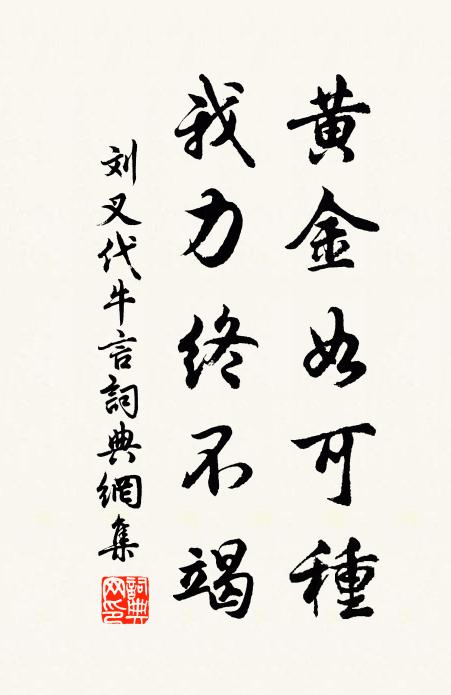 黄金如可種
我力终不竭
刘叉代牛言詞典網集
詞典網印